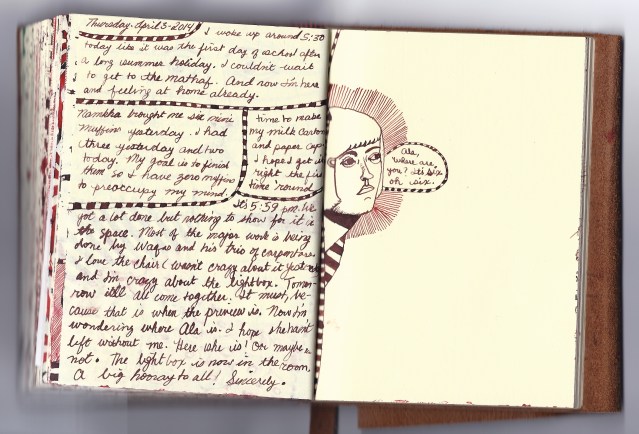 Thursday. April 3-2014
I woke up around 5:30
today like it was the first day of school after
a long summer holiday. I couldn't wait
to get to the mathaf. And now I'm here
and feeling at home already.
Namkha brought me six mini
muffins yesterday. I had
three yesterday and two
today. My goal is to finish
them so I have zero muffins
to preoccupy my mind.
time to make
my milk carton
and paper cups
I hope I get it
right the first
time 'round
It's 5:59 pm. We
got a lot done but nothing to show for it in
the space. Most of the major work is being
done by Waqas and his trio of carpenters.
I love the chair (wasn't crazy about it yesterday)
and I'm crazy about the lightbox. Tomor-
row it'll all come together. It must, be-
cause that is when the princess is. Now I'm
wondering where Ala is. I hope she hasn't
left without me. Here she is! Or maybe
not. The lightbox is now in the room.
A big hooray to all! Sincerely.
Ala,
where are
you? It's six
oh six.